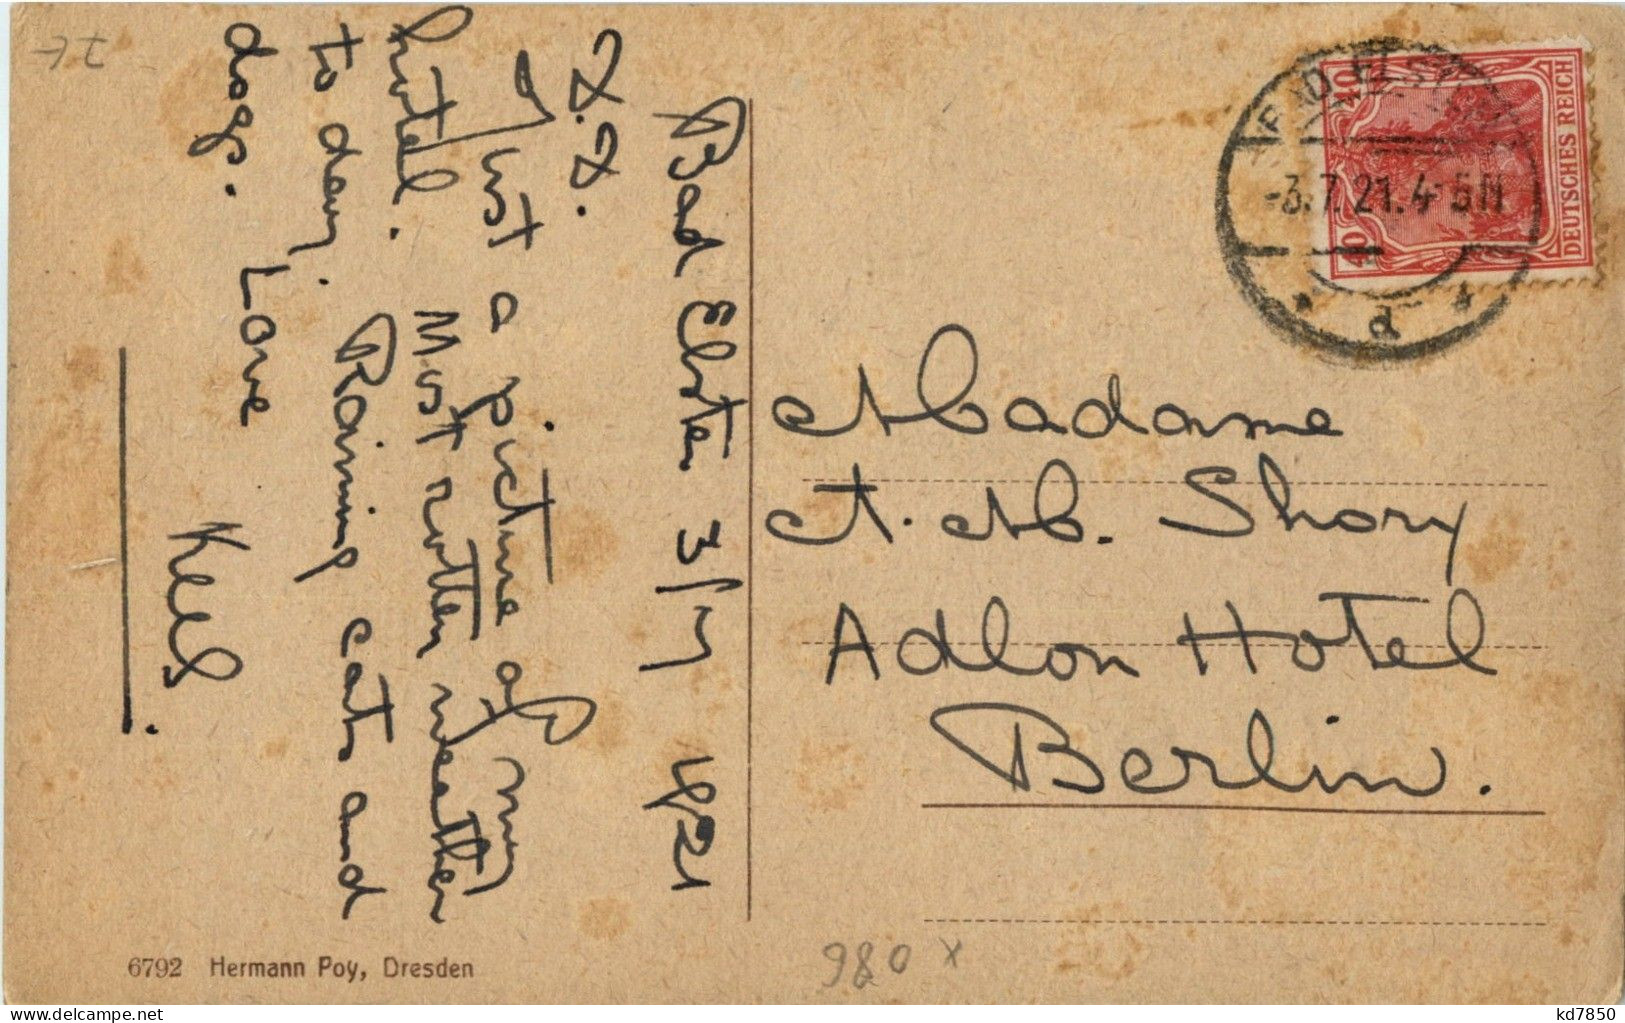 Bad Elster 3/VII 1921
D.D.
Just a picture of my
hotel. Most rotten weather
to day. Raining cats and
dogs. Love
Kees.
Madame
A. M. Shory
Adlon Hotel
Berlin.
BAD ELSTER
-3.7.21.4-5N
* d *
DEUTSCHES REICH
40 40
6792 Hermann Poy, Dresden
980 x
kd7850